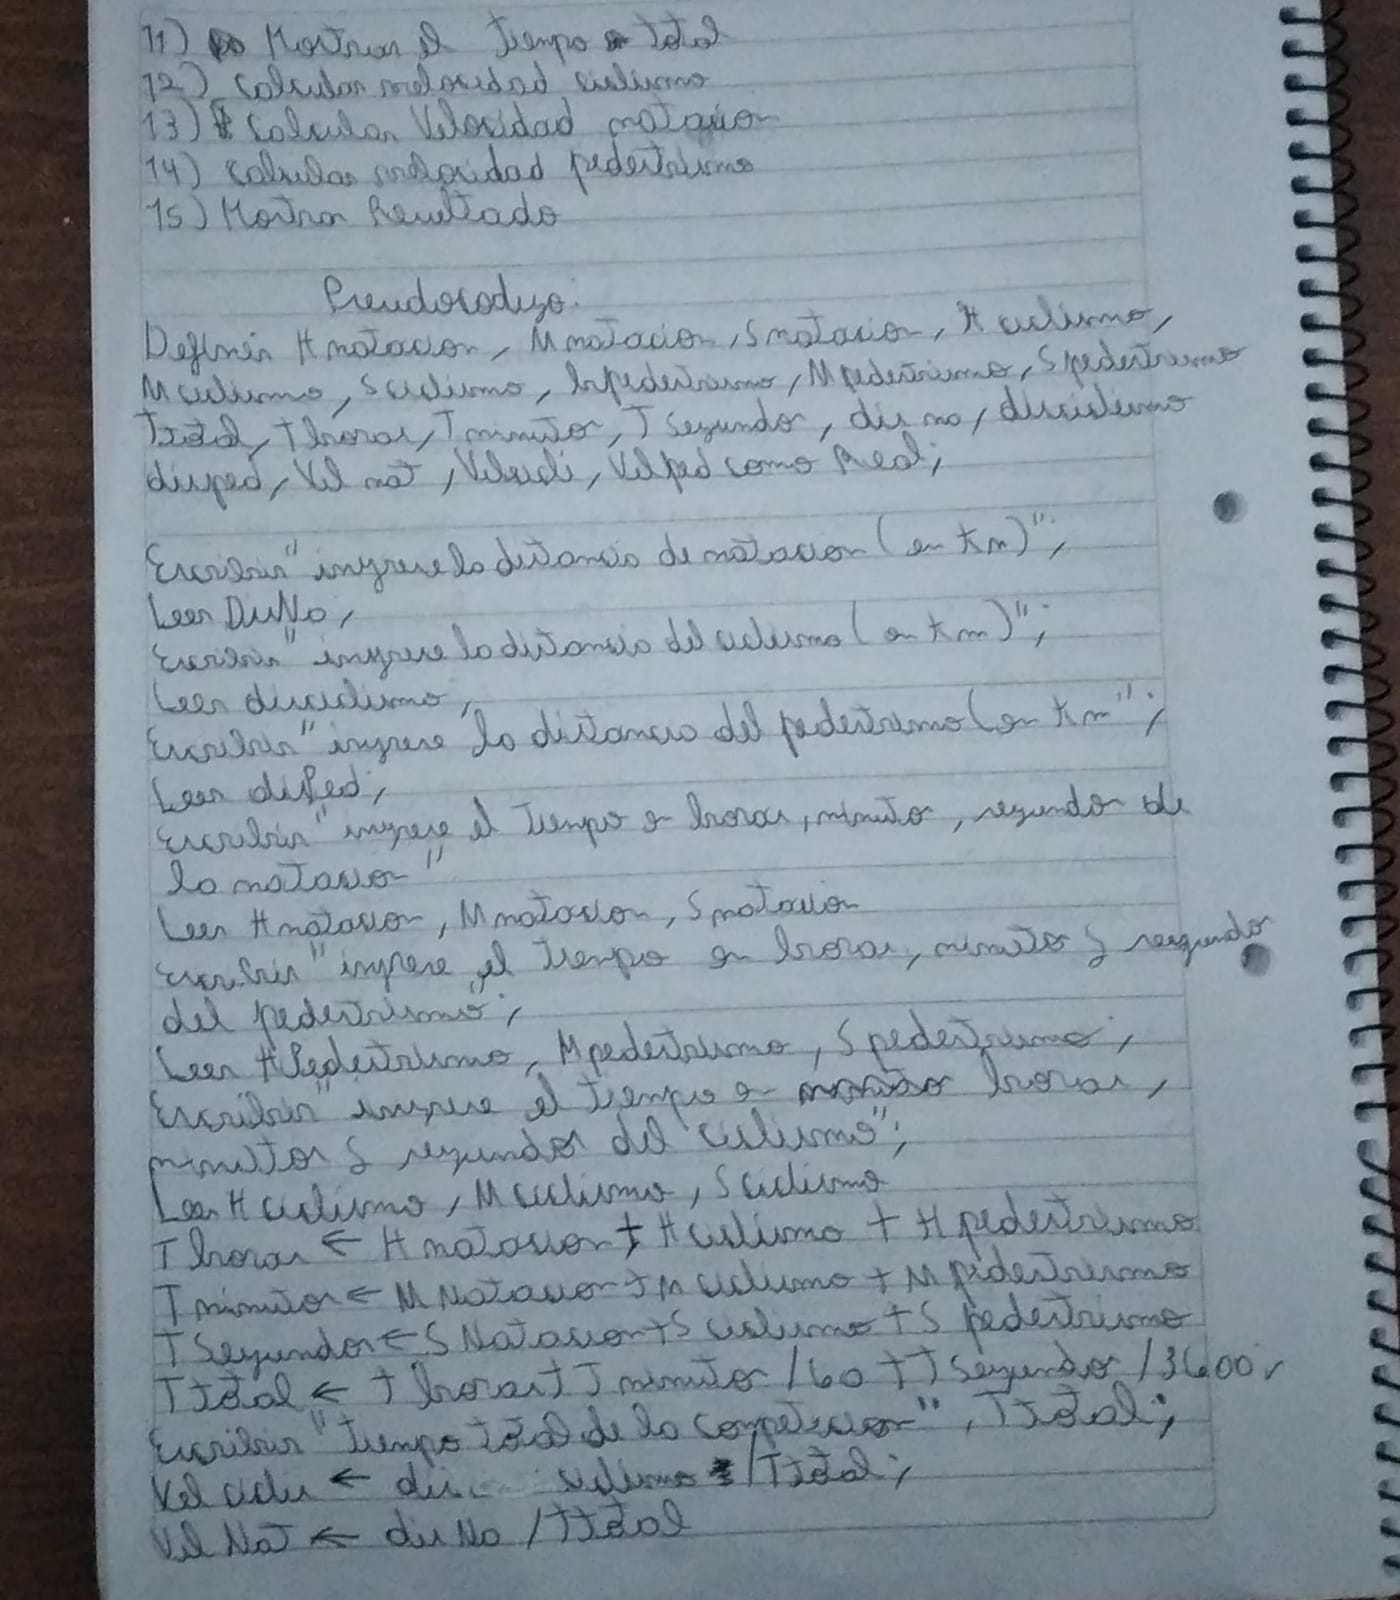 11) Mostrar el tiempo total
12) calcular velocidad ciclismo
13) Calcular Velocidad natacion
14) calcular velocidad pedestrismo
15) Mostrar Resultado
Pseudocodigo:
Definir H natacion, M natacion, S natacion, H ciclismo,
M ciclismo, S ciclismo, hpedestrismo, M pedestrismo, S pedestrismo
Ttotal, T horas, T minutos, T Segundos, dis na, disciclismo
disped, Vel nat, Velcicli, Velped como Real;
Escribir "ingrese la distancia de natacion (en Km)";
Leer DisNa;
Escribir "ingrese la distancia del ciclismo (en Km)";
Leer disciclismo;
Escribir "ingrese la distancia del pedestrismo (en Km";
Leer disPed;
Escribir "ingrese el tiempo en horas, minutos, segundos de
la natacion"
Leer H natacion, M natacion, S natacion
Escribir "ingrese el tiempo en horas, minutos y segundos
del pedestrismo";
Leer H Pedestrismo, M pedestrismo, S pedestrismo;
Escribir "ingrese el tiempo en horas,
minutos y segundos del ciclismo";
Leer H ciclismo, M ciclismo, S ciclismo
T horas ← H natacion + H ciclismo + H pedestrismo
T minutos ← M Natacion + M ciclismo + M pedestrismo
T Segundos ← S Natacion + S ciclismo + S pedestrismo
T total ← T horas + T minutos / 60 + T Segundos / 3600;
Escribir "tiempo total de la competicion", Ttotal;
Vel cicli ← dis ciclismo / Ttotal;
Vel Nat ← dis Na / Ttotal